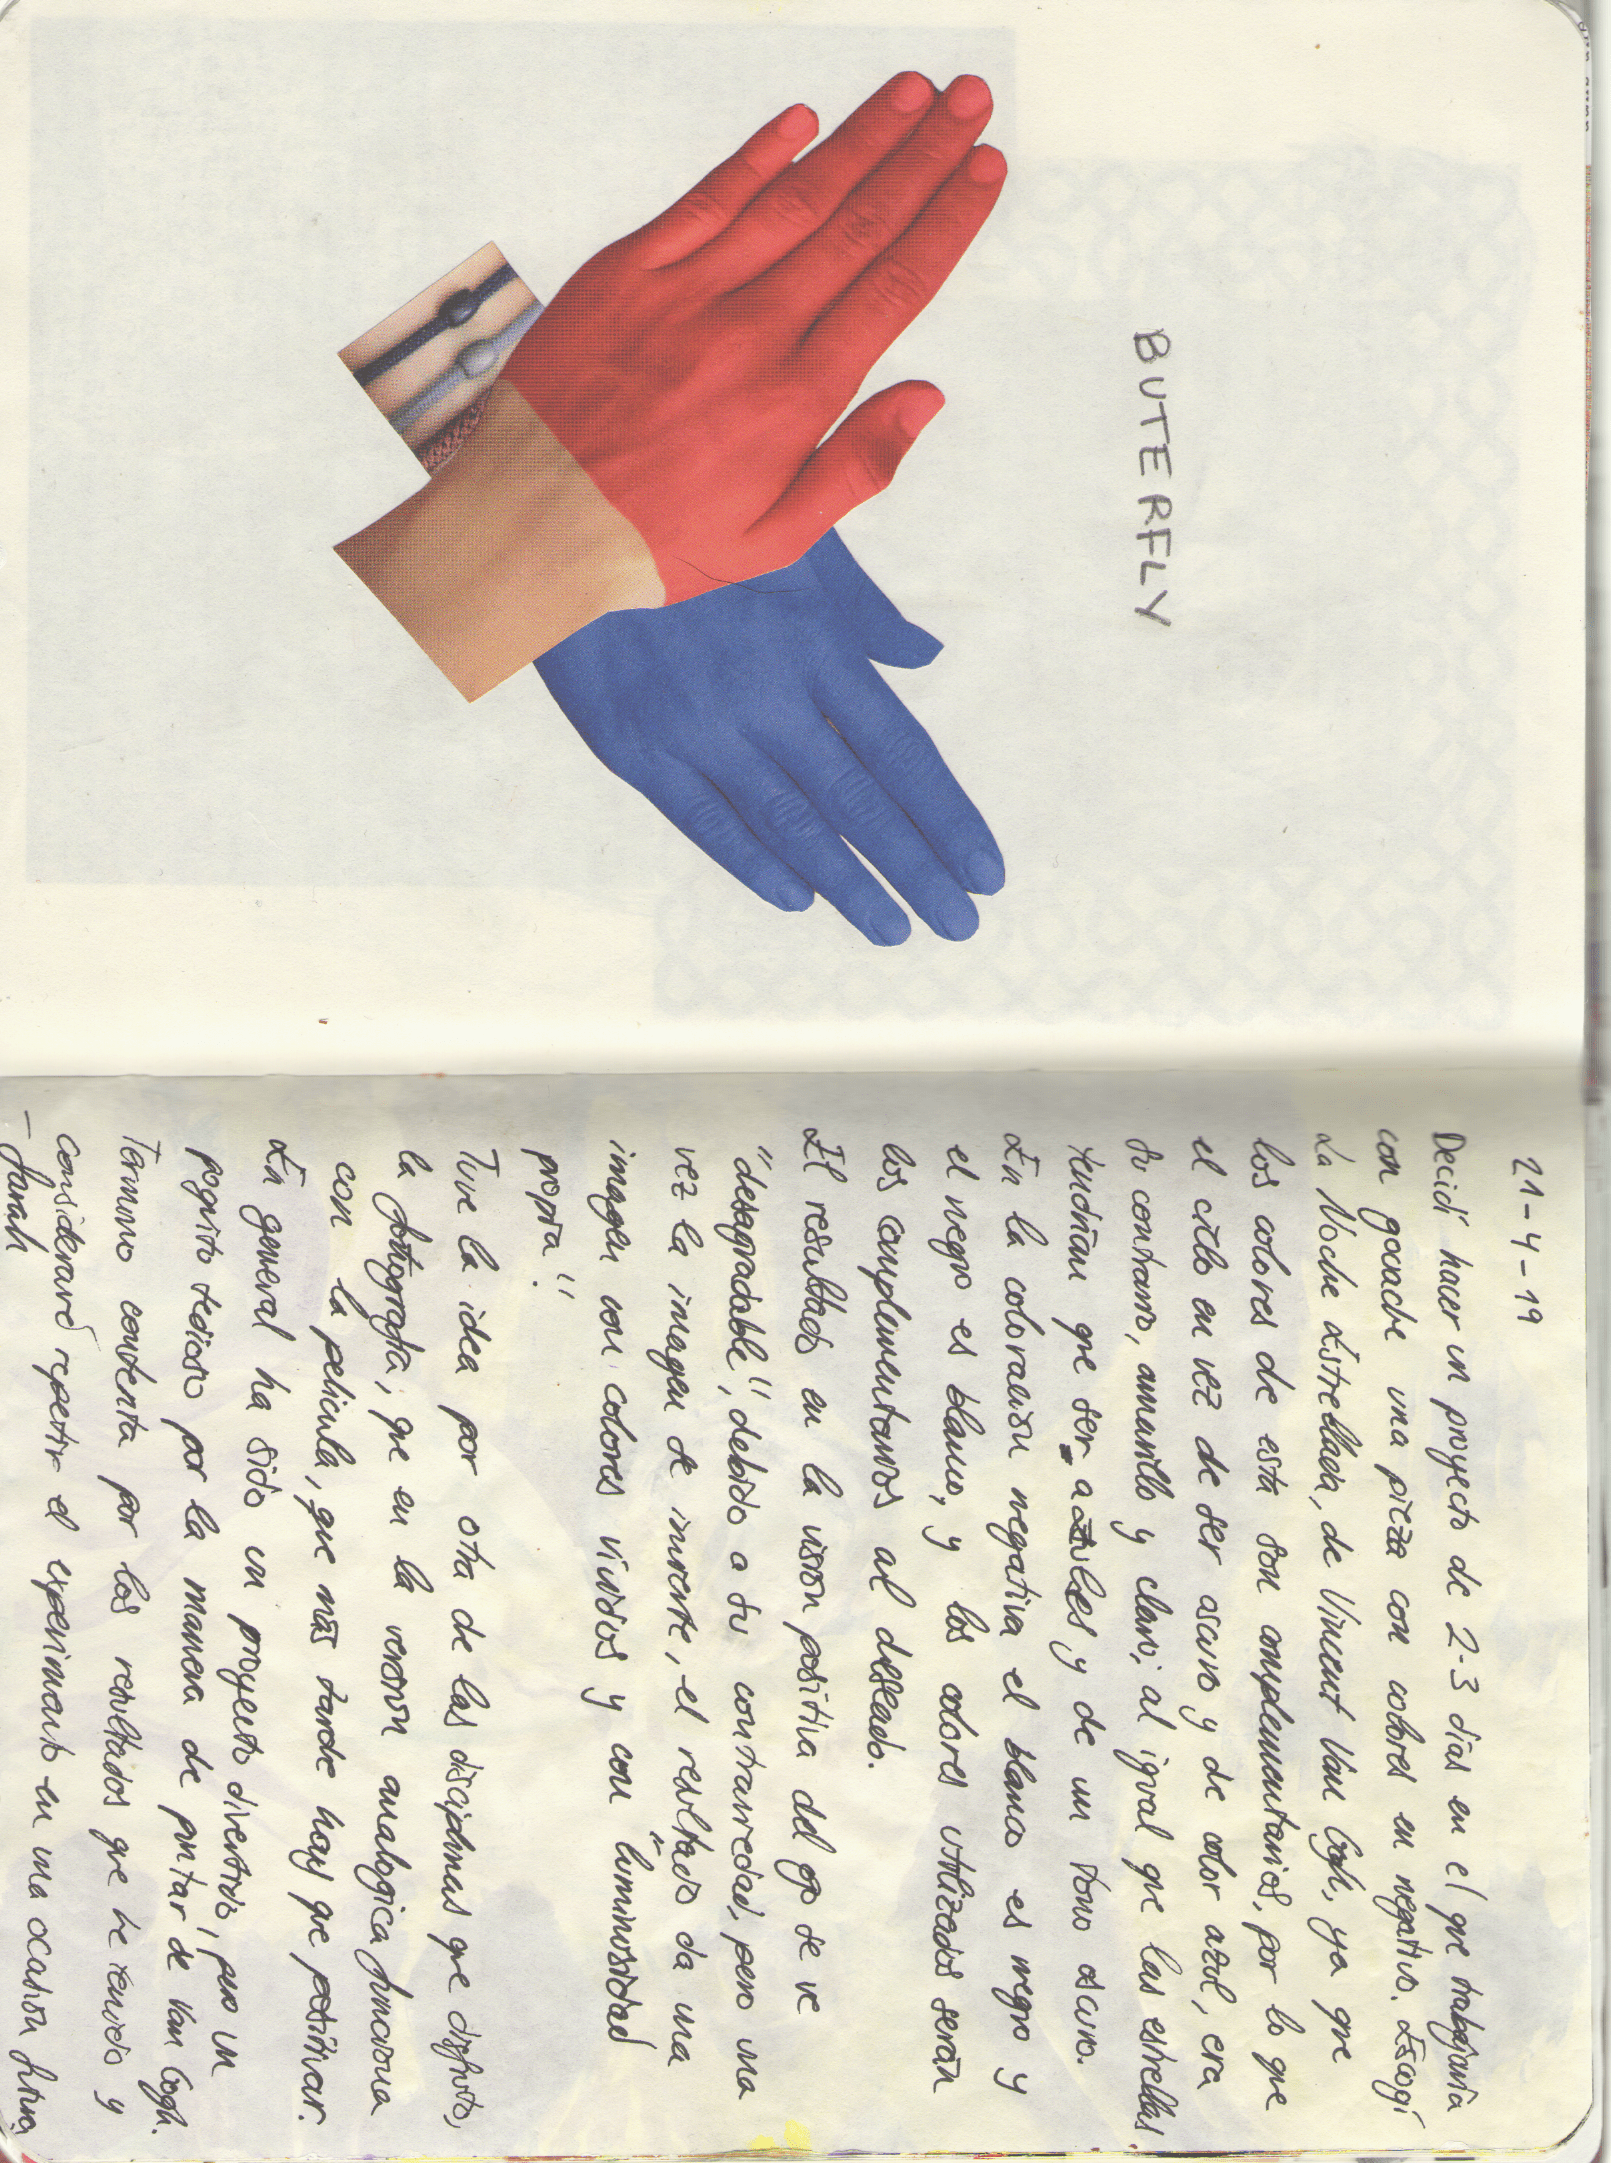 BUTERFLY
21-4-19
Decidí hacer un proyecto de 2-3 días en el que trabajaría
con gouache una pieza con colores en negativo. Escogí
La Noche Estrellada, de Vincent Van Gogh, ya que
los colores de esta son complementarios, por lo que
el cielo en vez de ser oscuro y de color azul, era
su contrario, amarillo y claro; al igual que las estrellas
tendrían que ser azules y de un tono oscuro.
En la coloración negativa el blanco es negro y
el negro es blanco, y los colores utilizados serán
los complementarios al deseado.
El resultado en la visión positiva del ojo se ve
"desagradable", debido a su contrariedad, pero una
vez la imagen se invierte, el resultado da una
imagen con colores vividos y con "luminosidad
propia".
Tuve la idea por otra de las disciplinas que disfruto,
la fotografía; que en la versión analogica funciona
con la pelicula, que más tarde hay que positivar.
En general ha sido un proyecto divertido, pero un
poquito tedioso por la manera de pintar de Van Gogh.
Termino contenta por los resultados que he tenido y
consideraré repetir el experimento en una ocasión futura
- Sarah